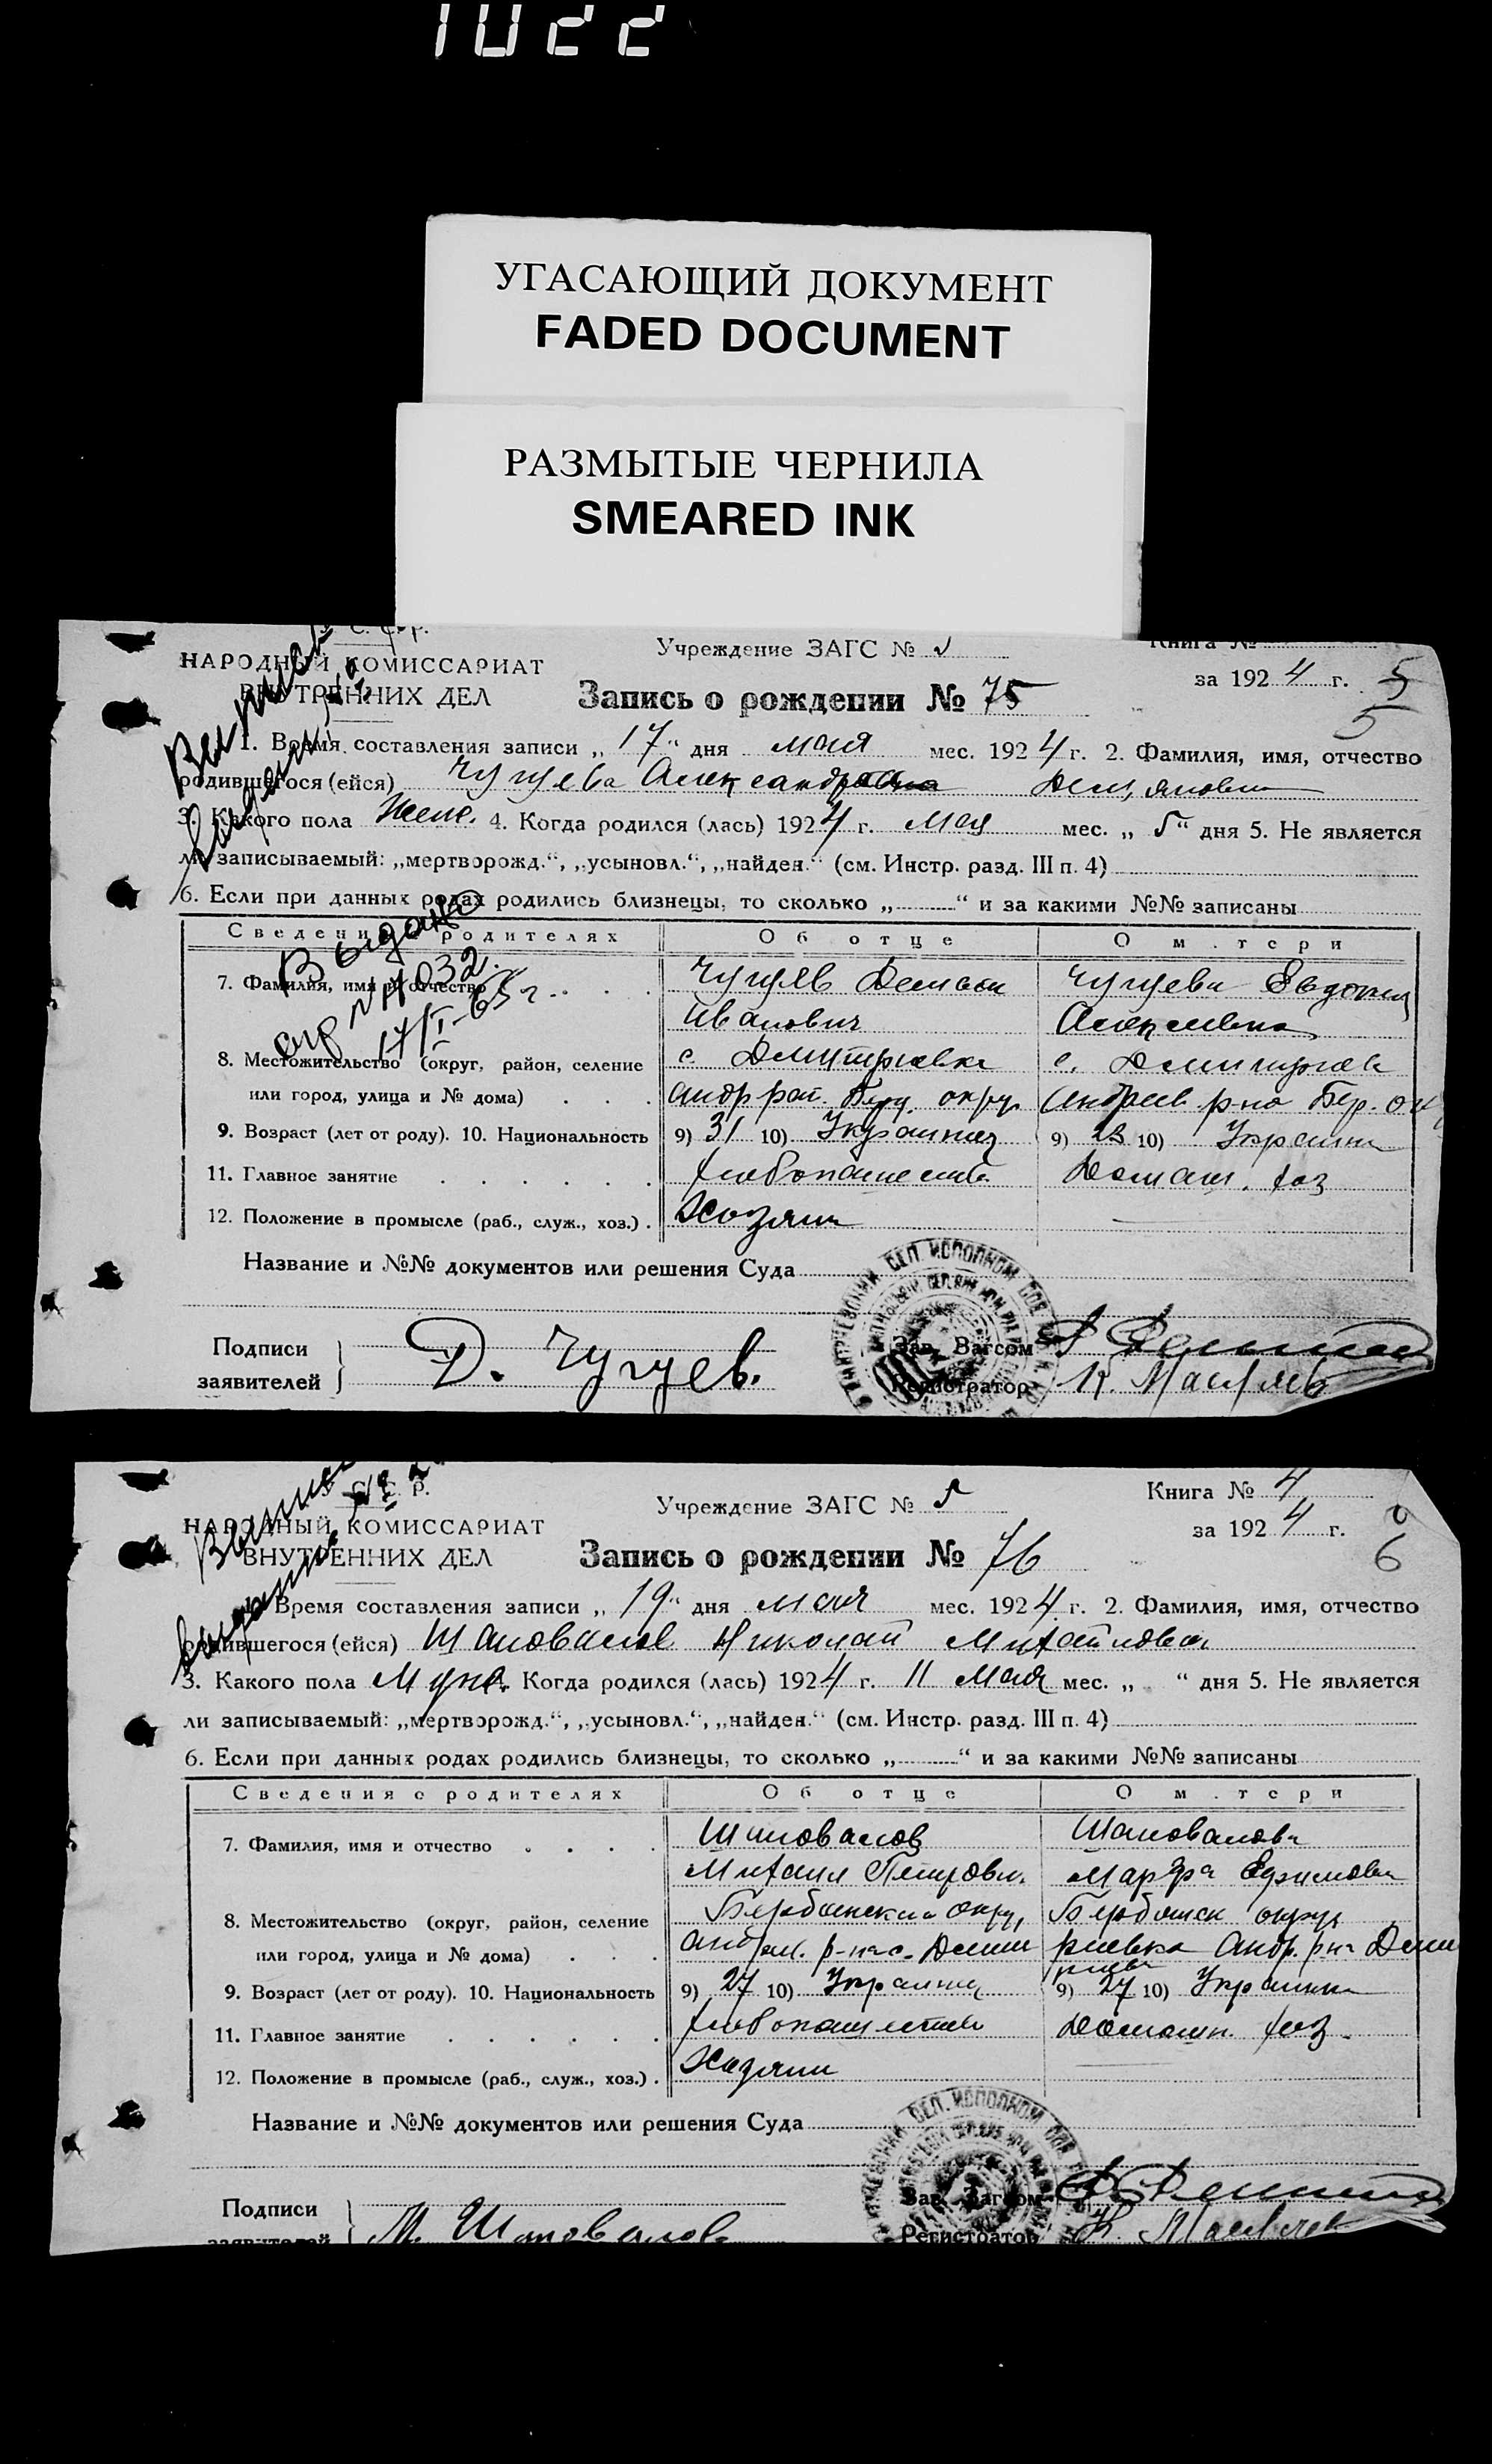 1022
УГАСАЮЩИЙ ДОКУМЕНТ
FADED DOCUMENT
РАЗМЫТЫЕ ЧЕРНИЛА
SMEARED INK
С. Ф. Р.
НАРОДНЫЙ КОМИССАРИАТ
ВНУТРЕННИХ ДЕЛ
Учреждение ЗАГС №
Книга №
за 1924 г.
5
Запись о рождении № 75
1. Время составления записи „17“ дня мая мес. 1924 г. 2. Фамилия, имя, отчество
родившегося (ейся) Чугуева Александра
3. Какого пола Жен. 4. Когда родился (лась) 1924 г. мая мес. „5“ дня 5. Не является
ли записываемый: „мертворожд.“, „усыновл.“, „найден.“ (см. Инстр. разд. III п. 4)
6. Если при данных родах родились близнецы, то сколько „ “ и за какими №№ записаны
Сведения о родителях Об отце О м.тери
7. Фамилия, имя и отчество Чугуев Демьян Чугуева Евдокия
Иванович Алексеевна
8. Местожительство (округ, район, селение с. Дмитриевка с.
или город, улица и № дома) Андр рай. окру. Андреев р-на Бер. ок
9. Возраст (лет от роду). 10. Национальность 9) 31 10) Украинец 9) 23 10)
11. Главное занятие хлебопашество Домаш. хоз
12. Положение в промысле (раб., служ., хоз.) Хозяин
Выдано
17/I-65 г.
Название и №№ документов или решения Суда
Подписи
заявителей
Д. Чугуев.
Зав. Загсом
Регистратор
С. С. Р.
НАРОДНЫЙ КОМИССАРИАТ
ВНУТРЕННИХ ДЕЛ
Учреждение ЗАГС № 5
Книга № 4
за 1924 г.
6
Запись о рождении № 76
1. Время составления записи „19“ дня мая мес. 1924 г. 2. Фамилия, имя, отчество
родившегося (ейся) Шаповалов Николай Михайлович
3. Какого пола Муж. 4. Когда родился (лась) 1924 г. 11 мая мес. „ “ дня 5. Не является
ли записываемый: „мертворожд.“, „усыновл.“, „найден.“ (см. Инстр. разд. III п. 4)
6. Если при данных родах родились близнецы, то сколько „ “ и за какими №№ записаны
Сведения о родителях Об отце О м.тери
7. Фамилия, имя и отчество Шаповалов Шаповалова
Михаил Петрович Марфа Ефимовна
8. Местожительство (округ, район, селение Бердянский округ, Бердянск округ
или город, улица и № дома) р-на с. Дмит риевка Андр. р-на Дми
9. Возраст (лет от роду). 10. Национальность 9) 27 10) Украинец 9) 27 10)
11. Главное занятие хлебопашество Домашн. хоз.
12. Положение в промысле (раб., служ., хоз.) Хозяин
Название и №№ документов или решения Суда
Подписи
заявителей
М. Шаповалов
Зав. Загсом
Регистратор